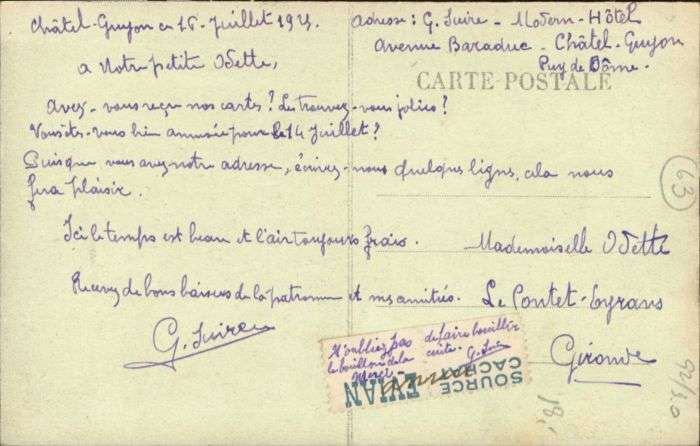 Châtel-Guyon ce 16 Juillet 192
Adresse : G. Suire - Modern-Hôtel
Avenue Baraduc - Châtel-Guyon
Puy de Dôme -
CARTE POSTALE
à Notre petite Odette,
Avez-vous reçu nos cartes ? Les trouvez-vous jolies ?
Vous êtes-vous bien amusée pour le 14 Juillet ?
Puisque vous avez notre adresse, écrivez-nous quelques lignes, cela nous
fera plaisir.
Ici le temps est beau et l'air toujours frais.
Recevez de bons baisers de la patronne et mes amitiés.
G. Suire
Mademoiselle Odette
Le Pontet-Eyrans
Gironde
N'oubliez pas de faire bouillir
le bouillon de la
Merci G. Suire
SOURCE
CACHAT
EVIAN
63
92/20
18,